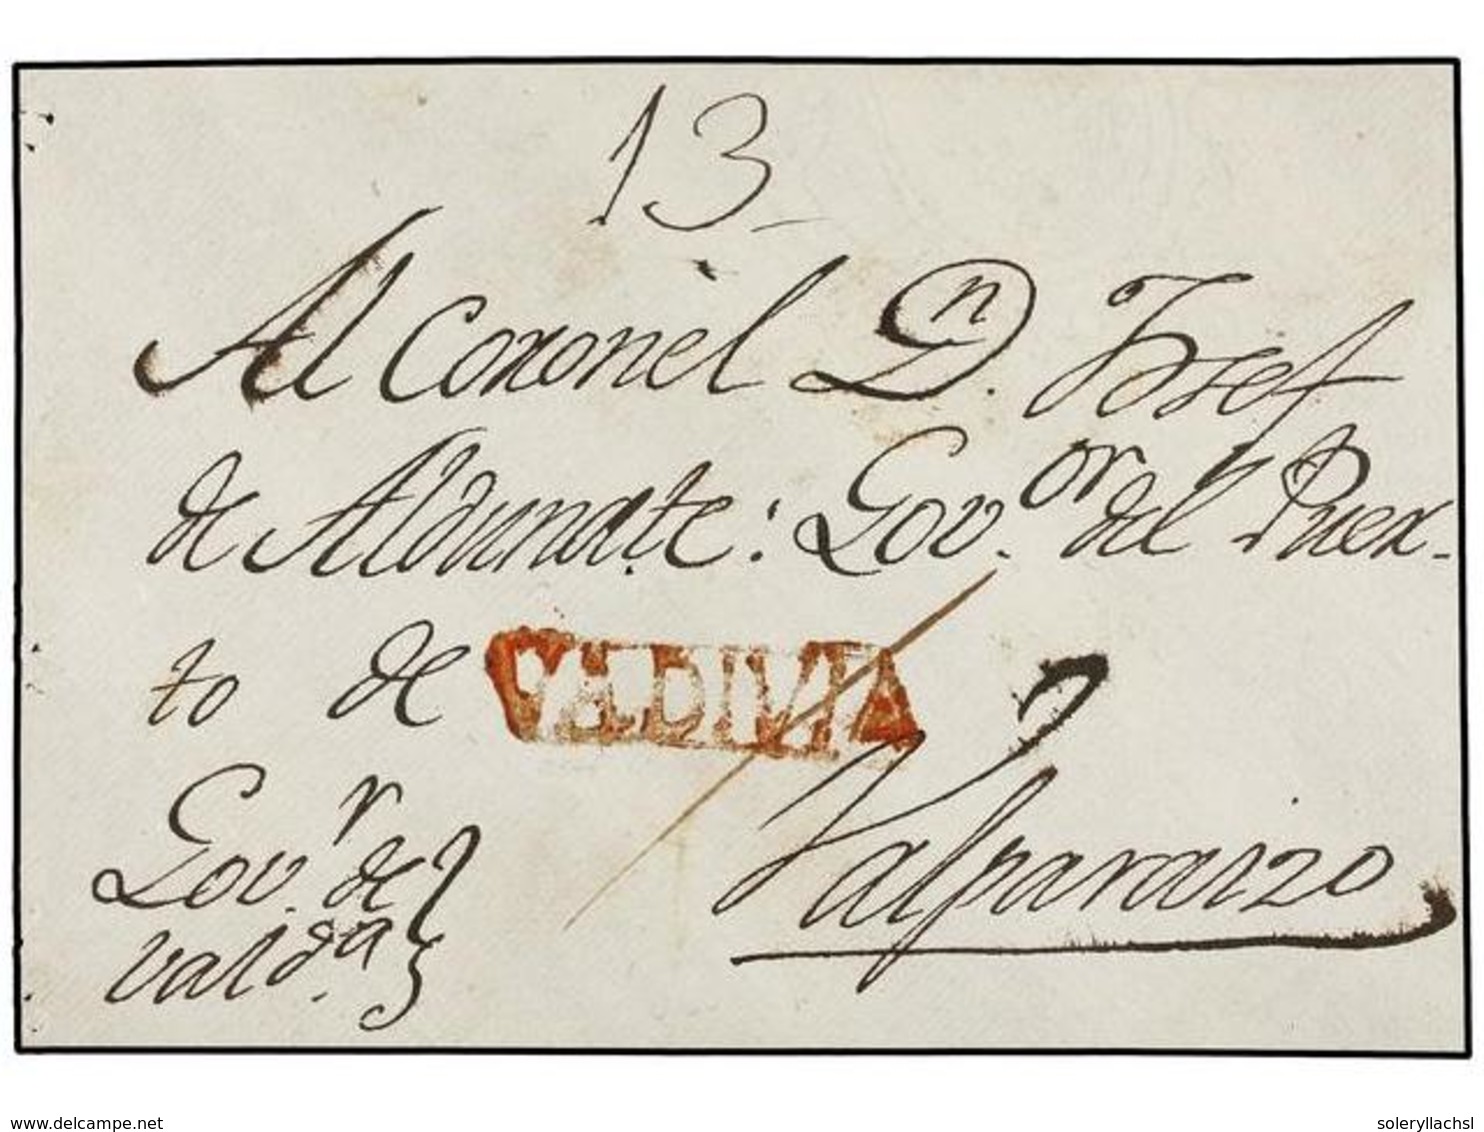 13
Al Coronel Dn. Josef
de Aldunate: Govor. del Puer-
to de VALDIVIA
Valparaizo
Govr. de
Valda.
www.delcampe.net
soleryllachsl